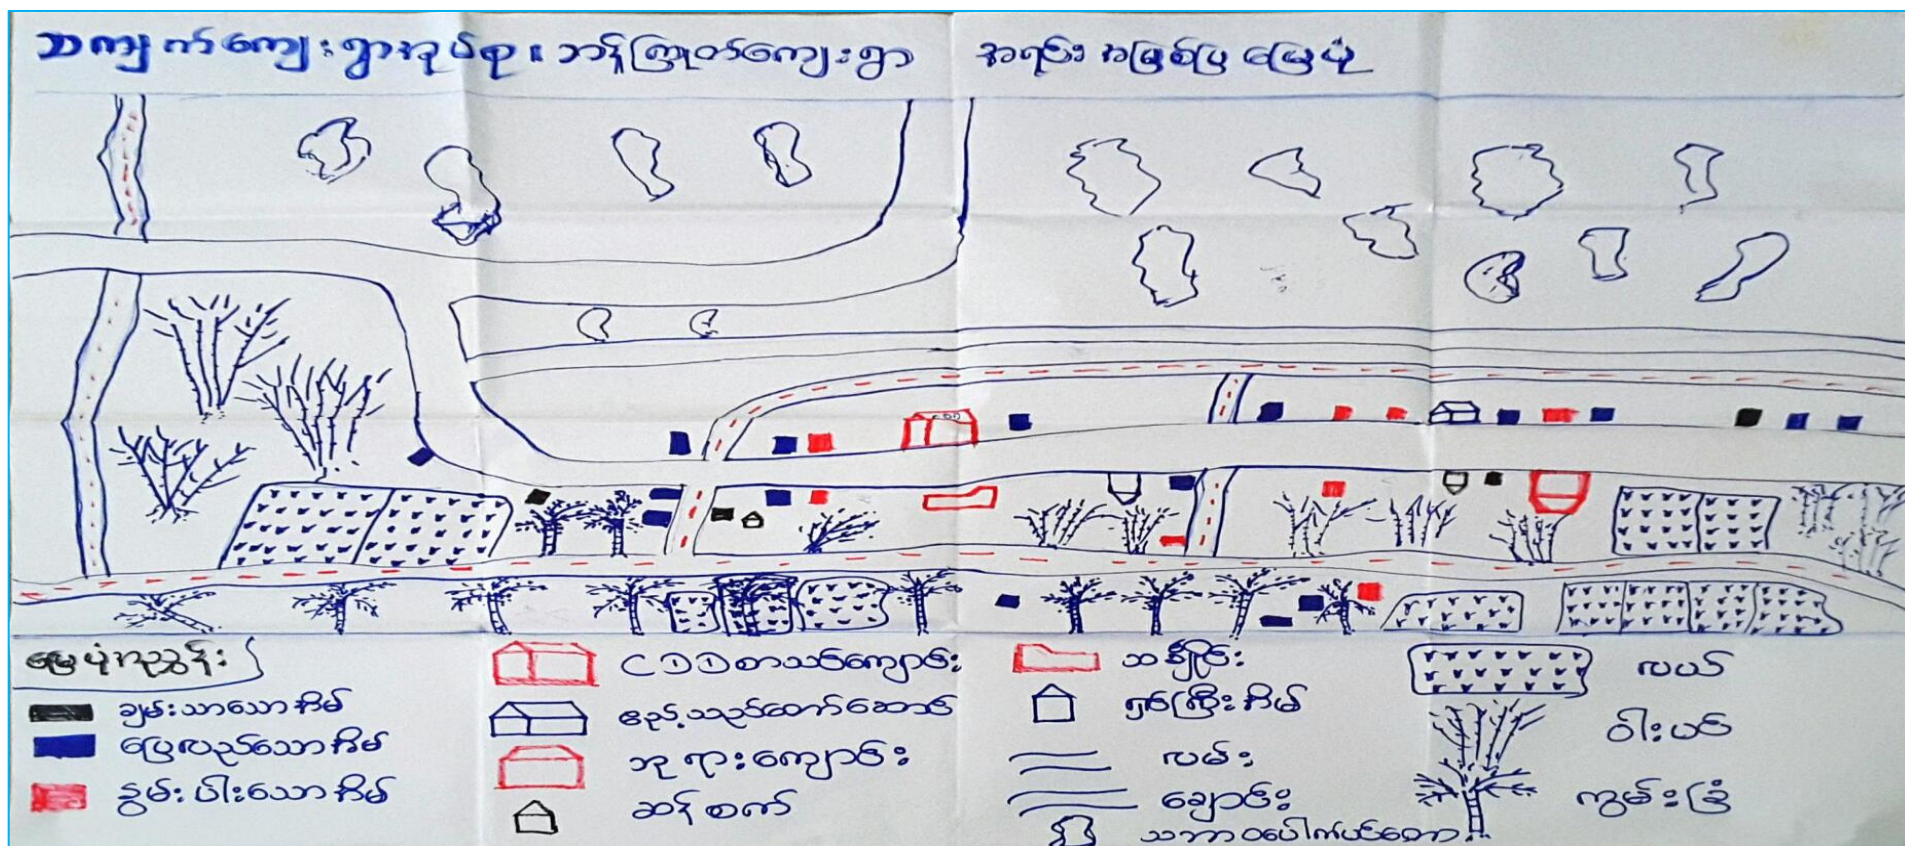 ဘကျွက်ကျေးရွာအုပ်စု။ ဘန့်ကြုတ်ကျေးရွာ အရင်းအမြစ်ပြ မြေပုံ
မြေပုံအညွှန်း
ချမ်းသာသောအိမ်
ပြေလည်သောအိမ်
နွမ်းပါးသောအိမ်
CDDစာသင်ကျောင်း
ဧည့်သည်တော်ဆောင်
ဘုရားကျောင်း
ဆန်စက်
သင်္ချိုင်း
ရာအိမ်ကြီးအိမ်
လမ်း
ချောင်း
သဘာဝပေါက်ပင်တော
လယ်
ဝါးပင်
ကွမ်းခြံ